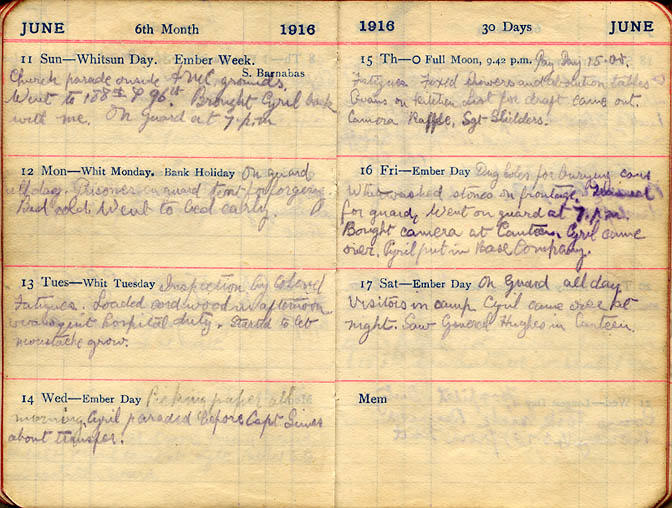 JUNE 6th Month 1916
11 Sun—Whitsun Day. Ember Week.
S. Barnabas
Church parade inside grounds,
Went to 108th & 96th Brought Cyril back
with me. On Guard at 7 p.m
12 Mon—Whit Monday. Bank Holiday On guard
all day. Prisoner in guard tent for forgering.
Bad cold Went to bed early.
13 Tues—Whit Tuesday Inspection by Colonel
Fatigues. Loaded cordwood in afternoon
hospital duty. Started to let
moustache grow.
14 Wed—Ember Day Picking paper all
morning Cyril paraded before Capt
about transfer.
1916 30 Days JUNE
15 Th—O Full Moon, 9.42 p.m. Pay Day 15.00.
Fatigues Fixed showers and ablution tables
Evans on kitchen List for draft came out.
Camera Raffle, Sgt Shilders.
16 Fri—Ember Day Dug holes for burying cans
White washed stones on frontage.
for guard, Went on guard at 7. p.m.
Bought camera at Canteen Cyril came
over. Cyril put in Base Company.
17 Sat—Ember Day On Guard all day
Visitors in camp Cyril came over at
night. Saw General Hughes in Canteen.
Mem